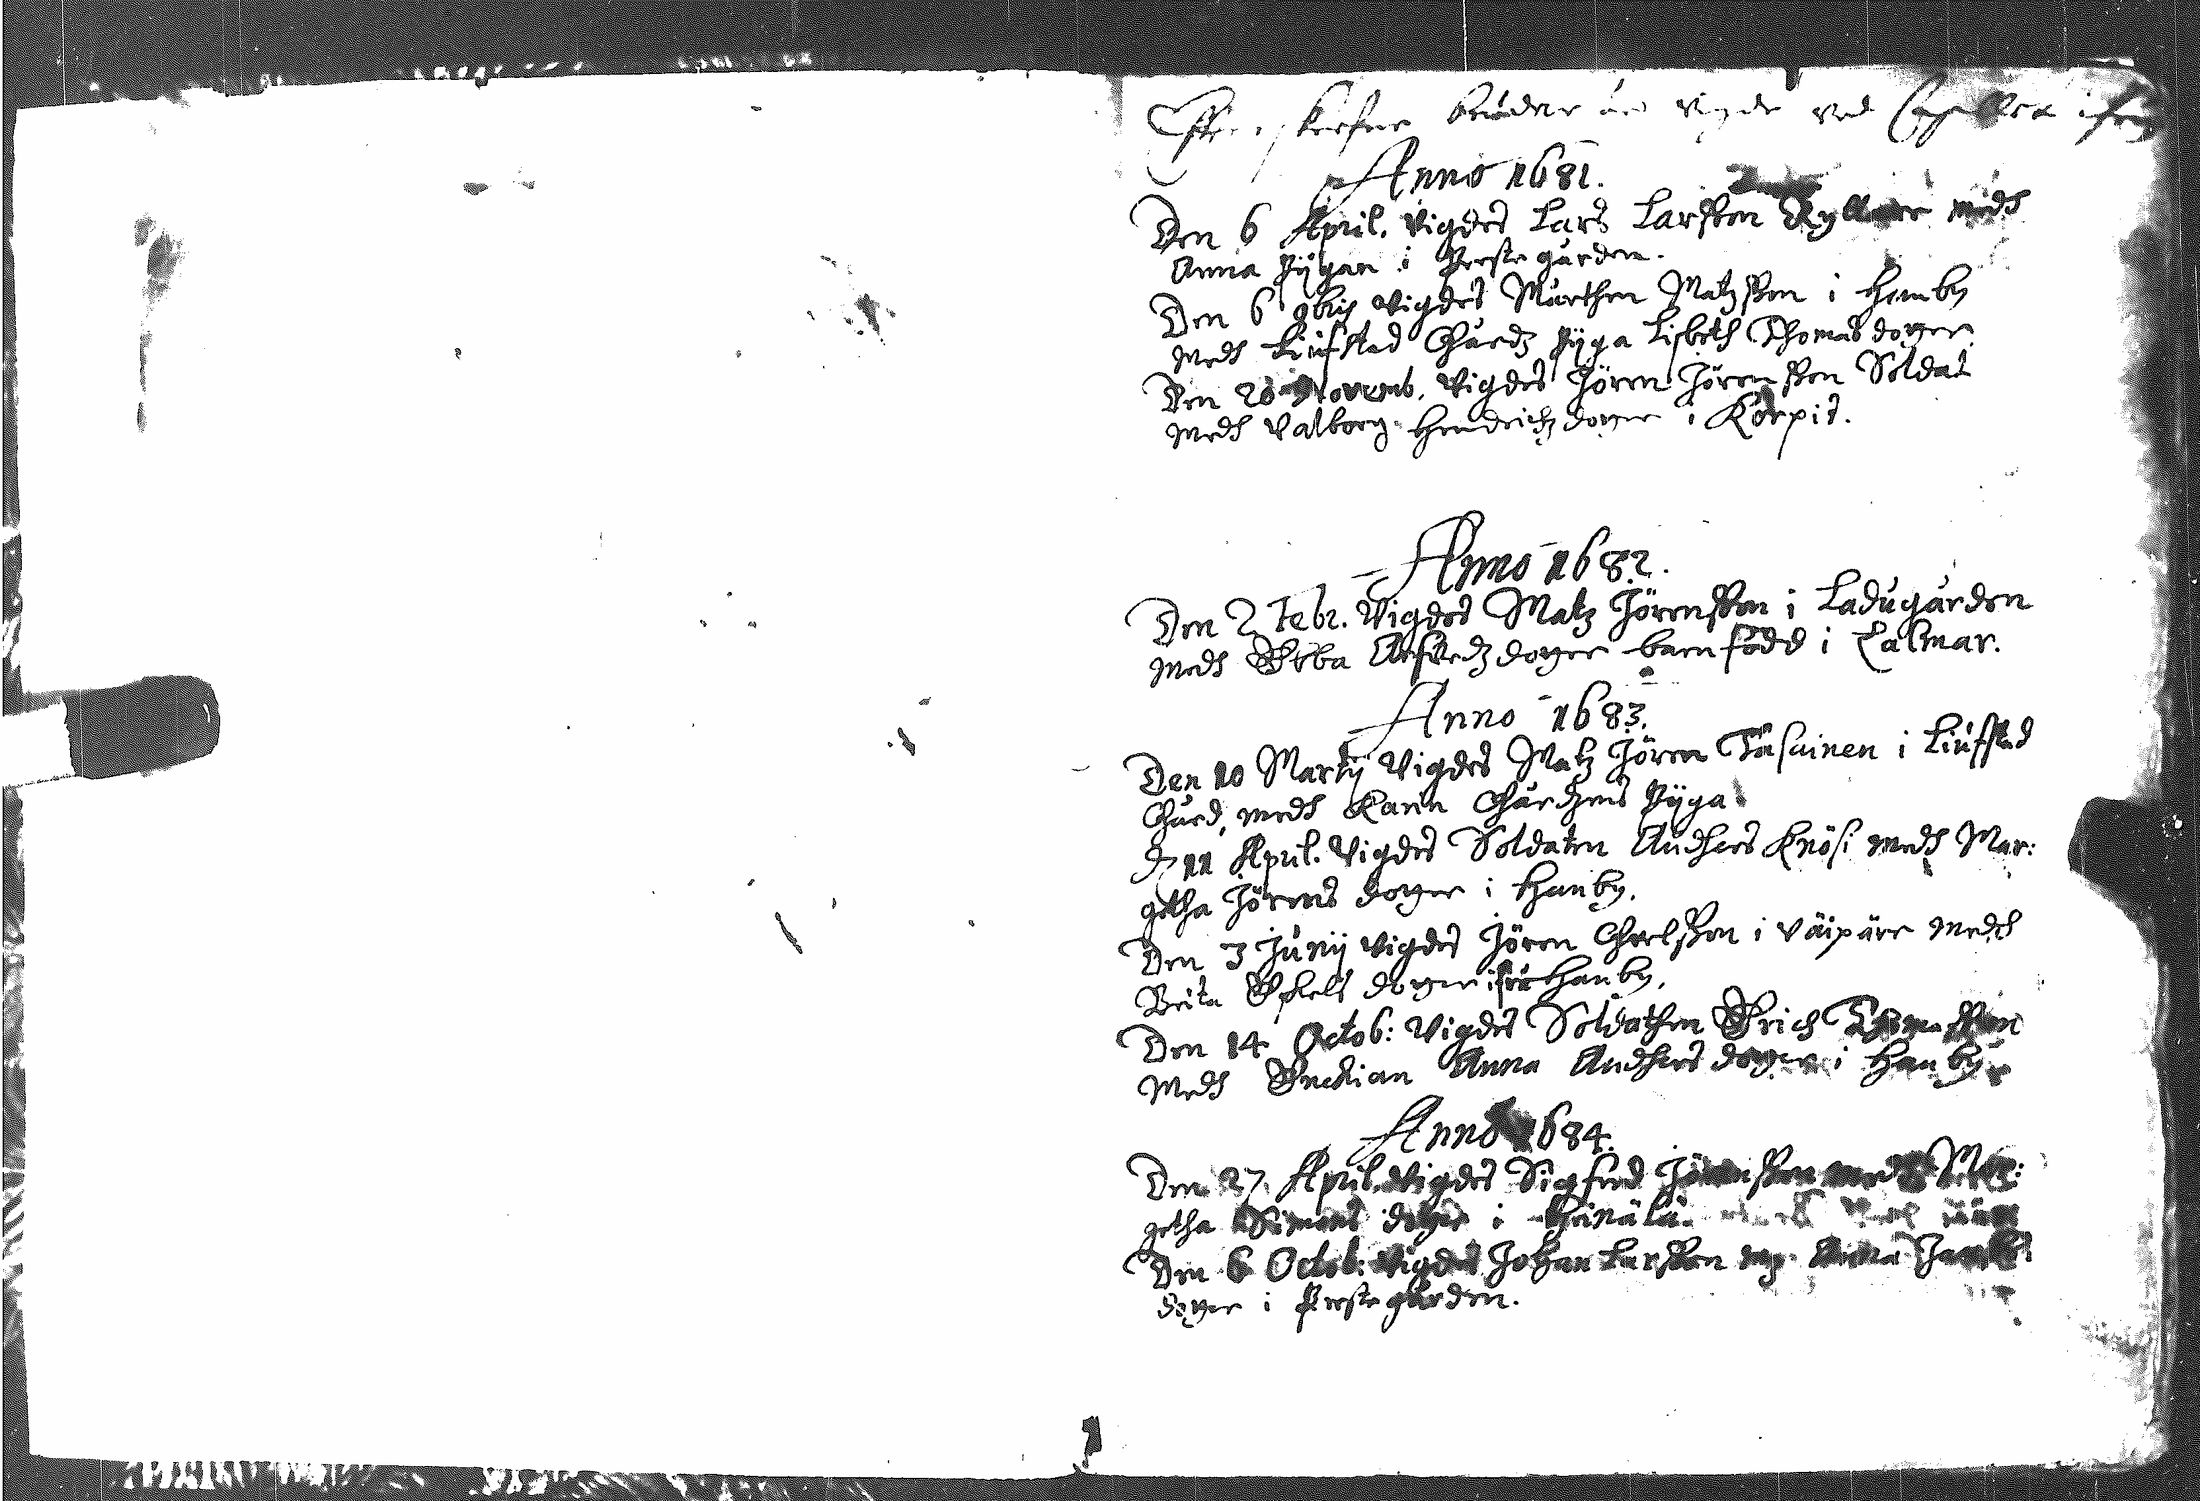 Effterskrefne brúder äro vigde ved Capellet
Anno 1681.
Den 6 April. Vigdes Lars Larsson Ryttare medh
Anna Pijgan i Prestegården.
Den 6 9bris Vigdes Mårthen Matzsson i Hanby
medh Liúfstad Gårdz Pijga Lisbeth Thomasdoter.
Den 20 Novemb. Vigdes Jören Jörensson Soldat
medh Valborg Hendrichzdoter i Korpis.
Anno 1682.
Den 2 Febr. Vigdes Matz Jörensson i Ladugården
medh Ebba Arfvedzdoter barnfödd i Calmar.
Anno 1683.
Den 10 Martij Vigdes Matz Jören i Liúfstad
Gård, medh Karin Gårdzens Pijga
D 11 April. Vigdes Soldaten Andhers Knösi medh Mar:
getha Jörens doter i Hanby.
Den 3 Júnij Vigdes Jören Carlsson i Väipäre medh
Brita Eskels doter ifrå Hanby.
Den 14 Octob: Vigdes Soldathen Erich Thomasson
Medh Enckian Anna Andhers doter i Hanby
Anno 1684.
Den 27 April. Vigdes Sigfred Jörensson medh Mar:
getha Simons doter i Heinälä.
Den 6 Octob: Vigdes Johan Larsson m Anna
doter i Prestegården.